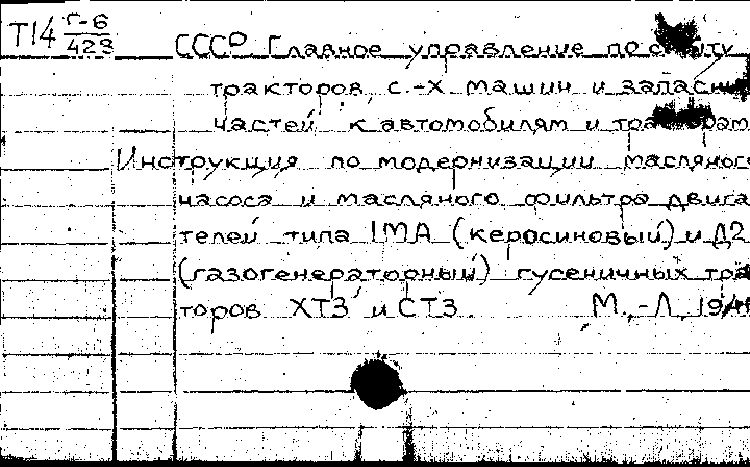 Т14 Г-6/423
СССР Главное управление по сбыту
тракторов, с.-х. машин и запасных
частей к автомобилям и тракторам
Инструкция по модернизации масляного
насоса и масляного фильтра двига
телей типа 1МА (керосиновый) и Д2
(газогенераторный) гусеничных тра
торов ХТЗ и СТЗ М.-Л.